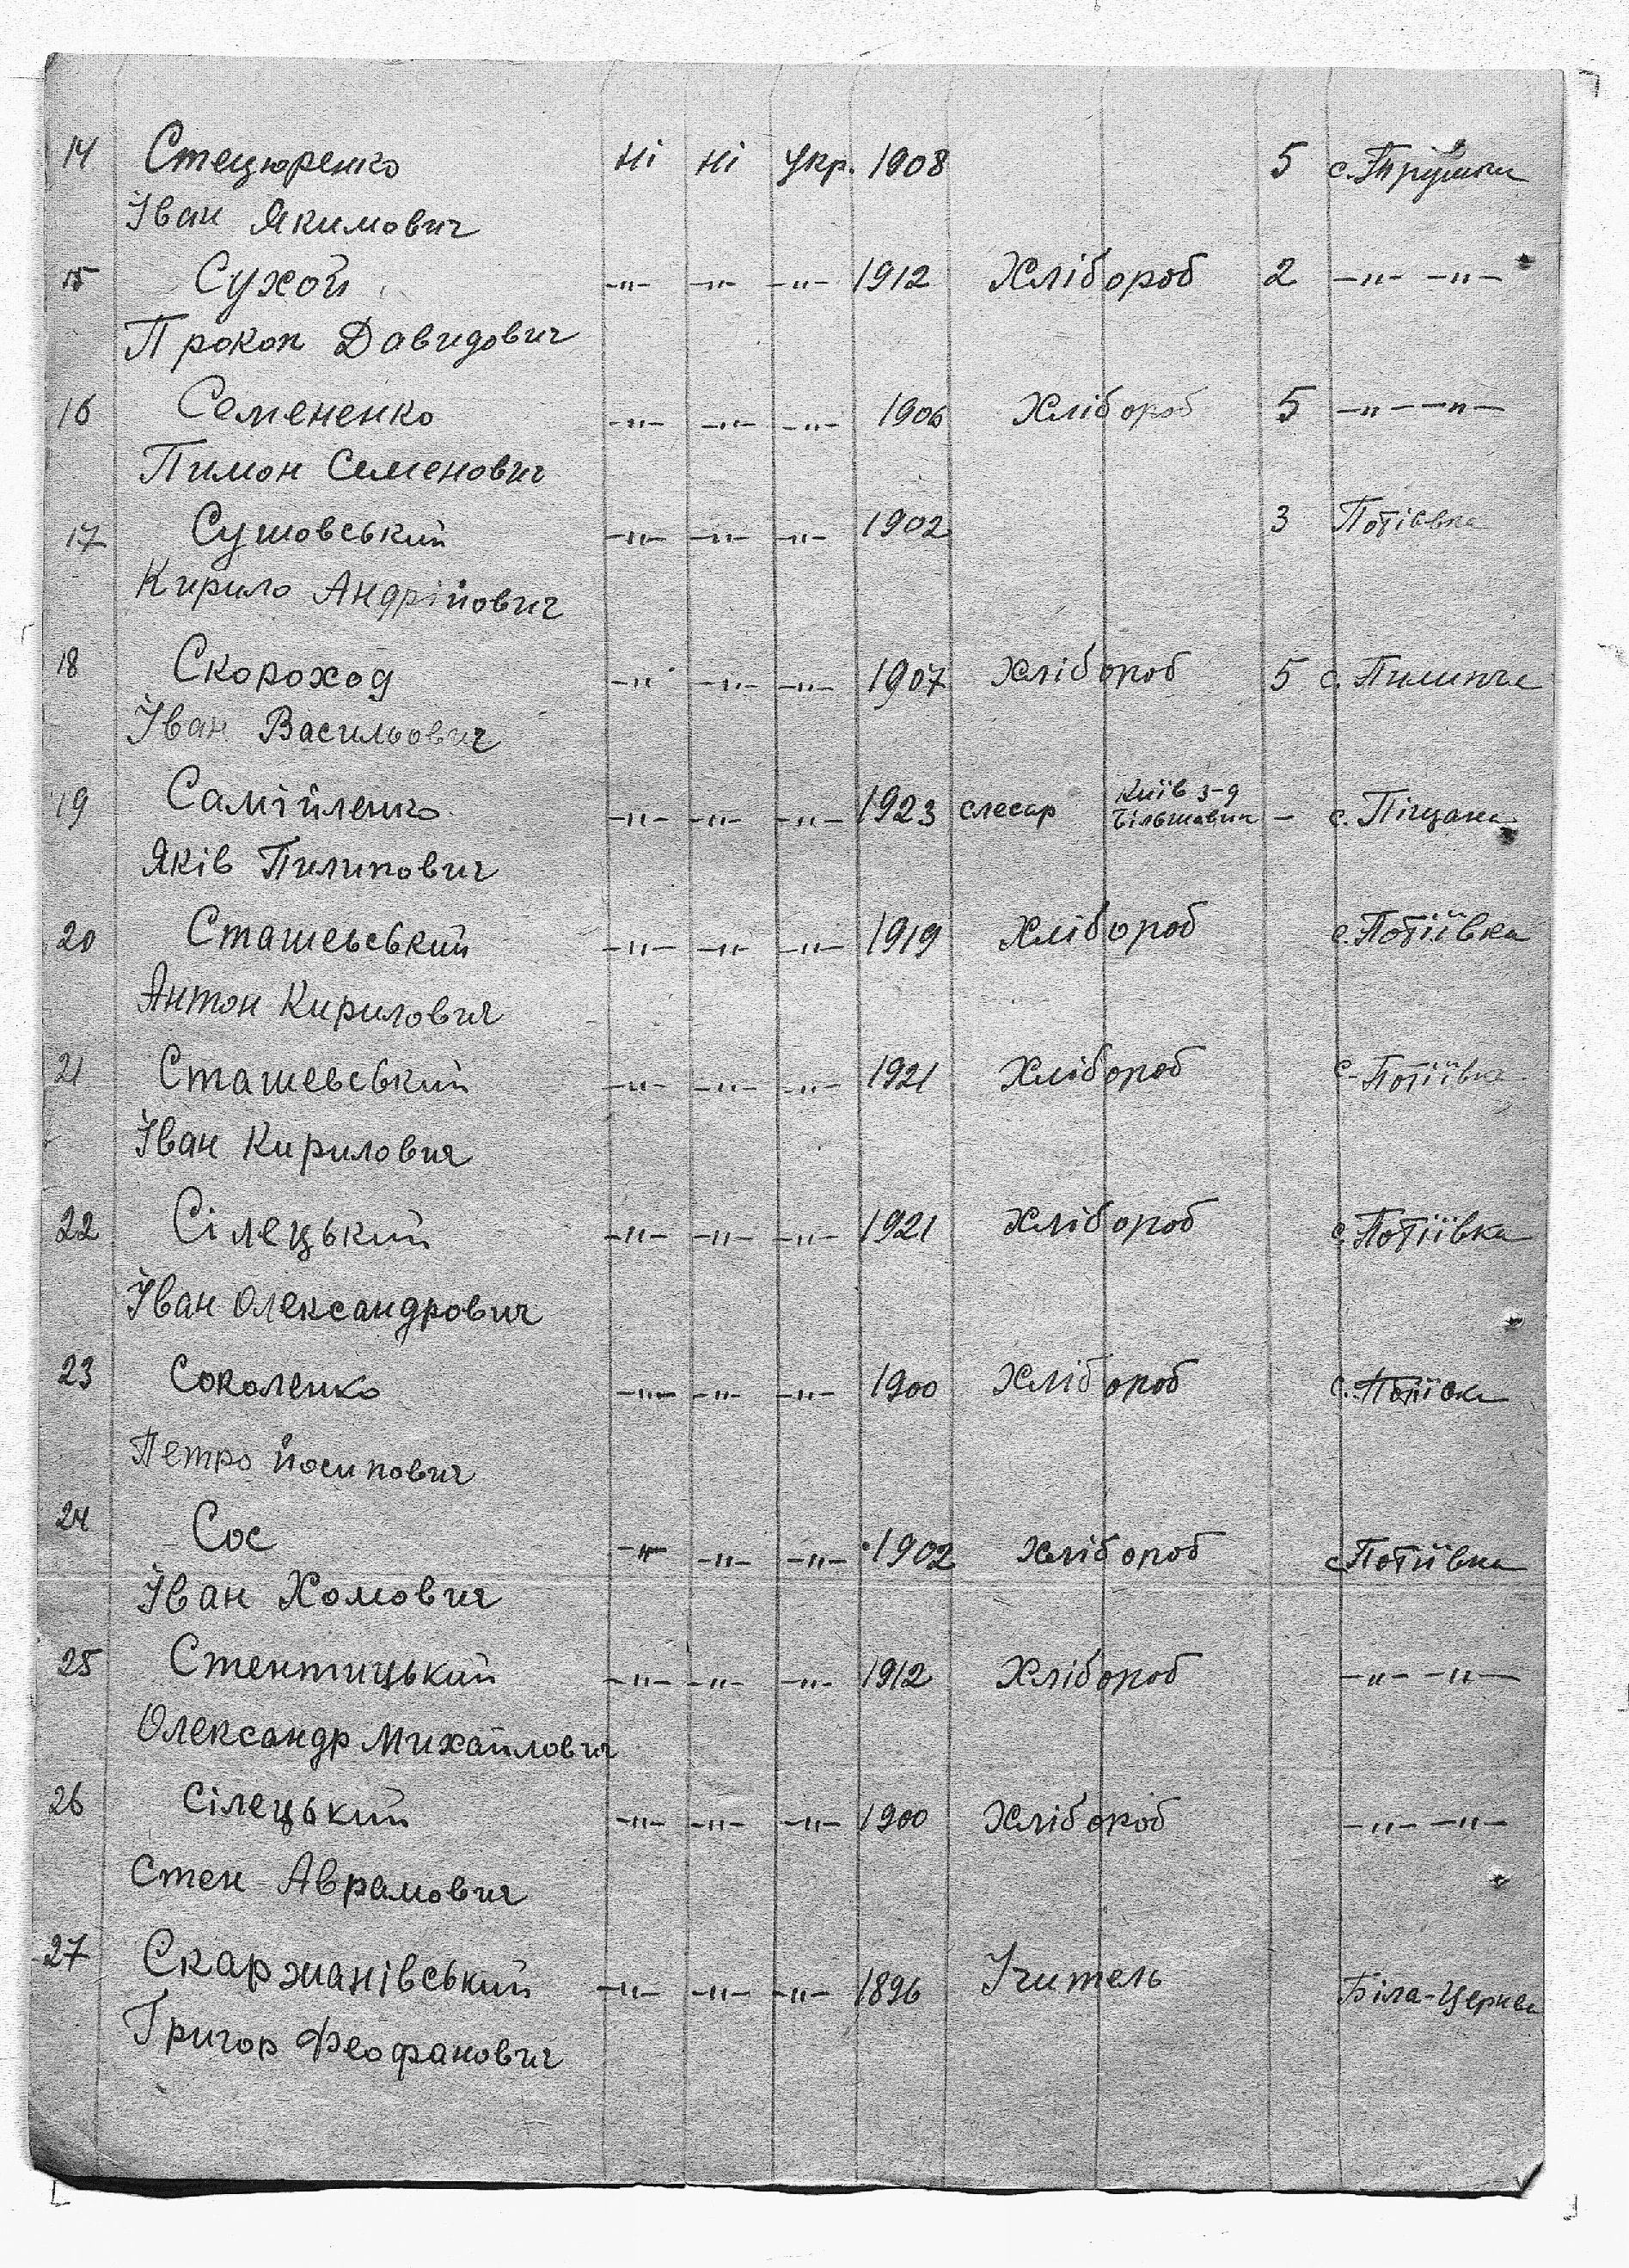 14 Стецюренко Ні Ні Укр. 1908 5 с. Трушки
Іван Якимович
15 Сухой -"- -"- -"- 1912 Хлібороб 2 -"- -"-
Прокоп Давидович
16 Семененко -"- -"- -"- 1906 Хлібороб 5 -"- -"-
Пимон Семенович
17 Сушовський -"- -"- -"- 1902 3 Потіївка
Кирило Андрійович
18 Скороход -"- -"- -"- 1907 Хлібороб 5 с. Пилипча
Іван Васильович
19 Самійленко -"- -"- -"- 1923 слесар Київ з-д
Більшовик – с. Піщана
Яків Пилипович
20 Сташевський -"- -"- -"- 1919 Хлібороб с. Потіївка
Антон Кирилович
21 Сташевський -"- -"- -"- 1921 Хлібороб с. Потіївка
Іван Кирилович
22 Сілецький -"- -"- -"- 1921 Хлібороб с. Потіївка
Іван Олександрович
23 Соколенко -"- -"- -"- 1900 Хлібороб с.
Петро Йосипович
24 Сос -"- -"- -"- 1902 Хлібороб с. Потіївка
Іван Хомович
25 Стентицький -"- -"- -"- 1912 Хлібороб -"- -"-
Олександр Михайлович
26 Сілецький -"- -"- -"- 1900 Хлібороб -"- -"-
Стен Аврамович
27 Скаржанівський -"- -"- -"- 1896 Учитель Біла-Церква
Григор Феофанович